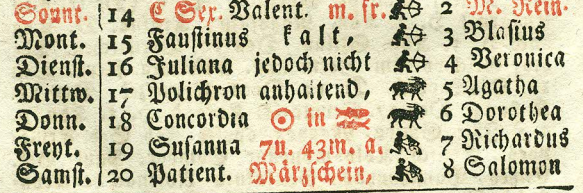 Sonnt. 14 C Sex. Valent. m. fr. 2 M. Rein.
Mont. 15 Faustinus kalt, 3 Blasius
Dienst. 16 Juliana jedoch nicht 4 Veronica
Mittw. 17 Polichron anhaltend, 5 Agatha
Donn. 18 Concordia ☉ in ♓ 6 Dorothea
Freyt. 19 Susanna 7u. 43m. a. 7 Richardus
Samst. 20 Patient. Märzschein, 8 Salomon